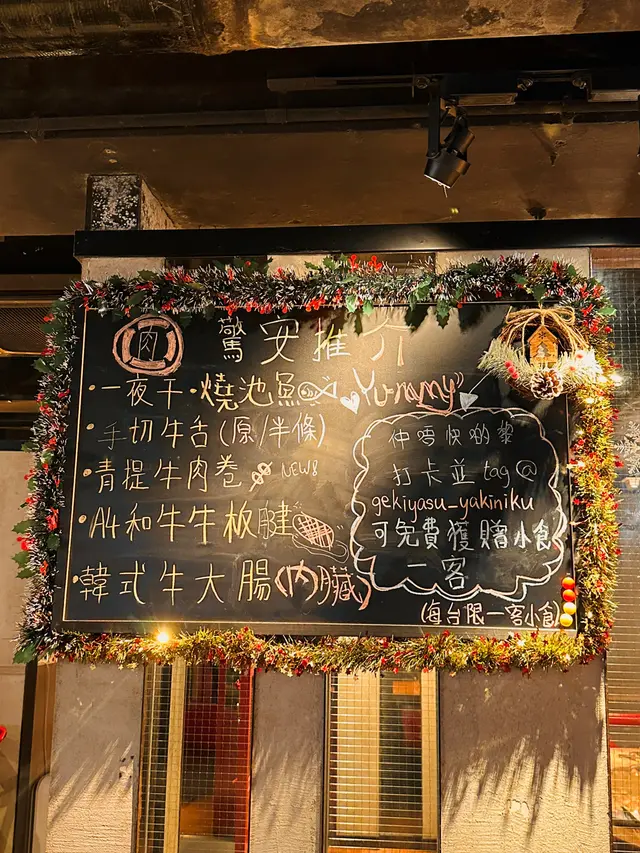 肉 驚安推介
・一夜干・燒池魚 Yummy
・手切牛舌(原/半條)
・青提牛肉卷 NEW8
・A4和牛牛板腱
・韓式牛大腸(內臟)
仲唔快啲黎
打卡並tag@
gekiyasu_yakiniku
可免費獲贈小食
一客
(每台限一客小食)